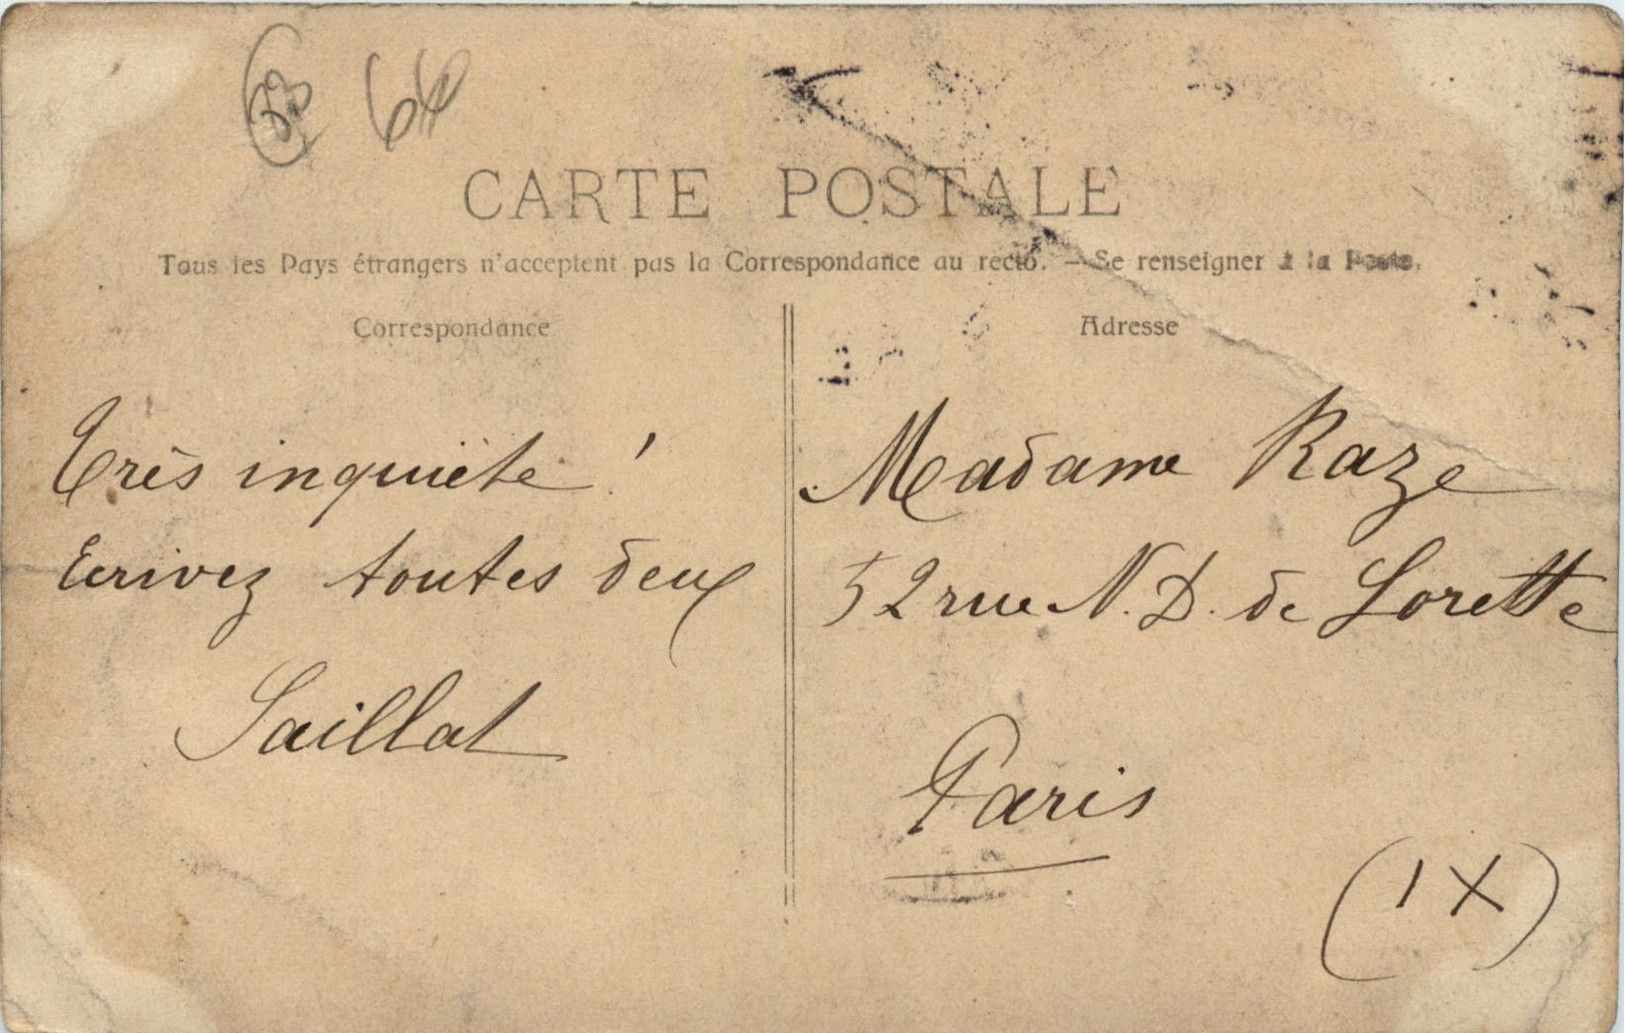 64
CARTE POSTALE
Tous les Pays étrangers n'acceptent pas la Correspondance au recto. — Se renseigner à la Poste.
Correspondance
Très inquiète !
Ecrivez toutes deux
Saillat
Adresse
Madame Raze
52 rue N. D. de Lorette
Paris
(IX)